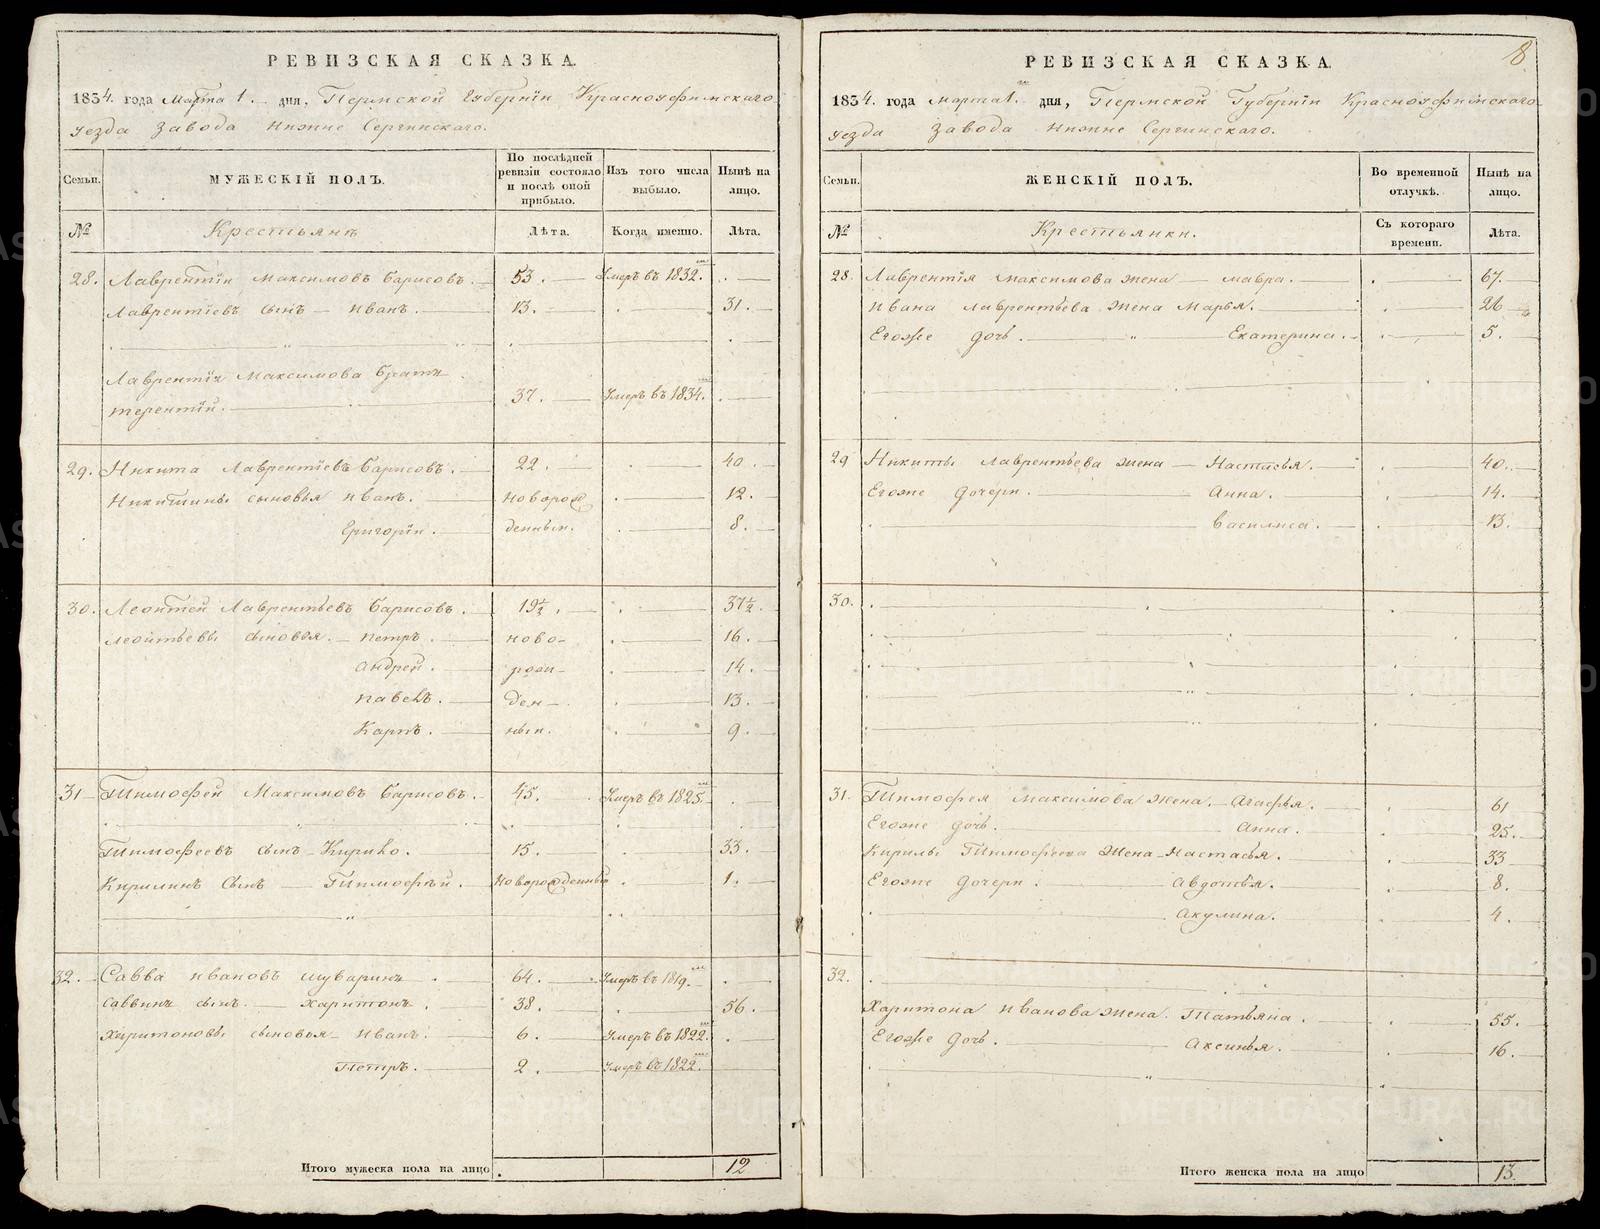 РЕВИЗСКАЯ СКАЗКА.
1834. года Марта 1. дня, Пермской Губерніи Красноуфимскаго
уезда Завода Нижне Сергинскаго.
Семьи. МУЖЕСКІЙ ПОЛЪ. По послѣдней ревизіи состояло и послѣ оной прибыло. Изъ того числа выбыло. Нынѣ на лицо.
№ Крестьянъ Лѣта. Когда именно. Лѣта.
28. Лаврентіи Максимовъ Барисовъ. 53. Умеръ въ 1832.
Лаврентіевъ сынъ Иванъ. 13. 31.
Лаврентія Максимова братъ
терентіи. 37. Умеръ въ 1834.
29. Никита Лаврентіевъ Барисовъ. 22. 40.
Никитины сыновья иванъ. новорож 12.
Григоріи. денныи. 8.
30. Леонтей Лаврентьевъ Барисовъ. 19½. 37½.
леонтьевы сыновья. петръ. ново- 16.
андрей. рож- 14.
павелъ. ден- 13.
Карпъ. ныи. 9.
31 Тимофей Максимовъ Барисовъ. 45. Умеръ въ 1825.
Тимофеевъ сынъ Кирило. 15. 33.
Кирилинъ Сынъ Тимофѣй. Новорожденный 1.
32. Савва ивановъ шуваринъ. 64. Умеръ въ 1819.
саввинъ сынъ. харитонъ. 38. 56.
харитоновы сыновья Иванъ. 6. Умеръ въ 1822.
Петръ. 2. Умеръ въ 1822.
Итого мужеска пола на лицо 12
8.
РЕВИЗСКАЯ СКАЗКА.
1834. года марта 1. дня, Пермской Губерніи Красноуфимскаго
уезда Завода Нижне Сергинскаго.
Семьи. ЖЕНСКІЙ ПОЛЪ. Во временной отлучкѣ. Нынѣ на лицо.
№ Крестьянки. Съ котораго времени. Лѣта.
28. Лаврентія максимова жена мавра. 67.
ивана Лаврентьева жена Марья. 26
Егоже дочь. Екатерина. 5.
29 Никиты Лаврентьева жена Настасья. 40.
Егоже дочери. Анна. 14.
василиса. 13.
30.
31. Тимофея максимова жена. Агафья. 61
Егоже дочь. Анна. 25.
Кирилы Тимофѣева жена Настасья. 33
Егоже дочери. авдотья. 8.
акулина. 4.
32.
Харитона иванова жена. Татьяна. 55.
Егоже дочь. Аксинья. 16.
Итого женска пола на лицо 13.
METRIKI.GASO-URAL.RU